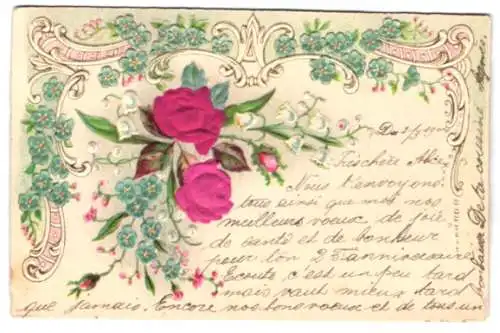 Du 2/5 190
Très chère Alice
Nous t'envoyons
tous ainsi que nos
meilleurs voeux de joie
de santé et de bonheur
pour ton 25 anniversaire
Ecoute c'est un peu tard
mais vaut mieux tard
que jamais. Encore nos bons voeux et de tous un
De ta cousine